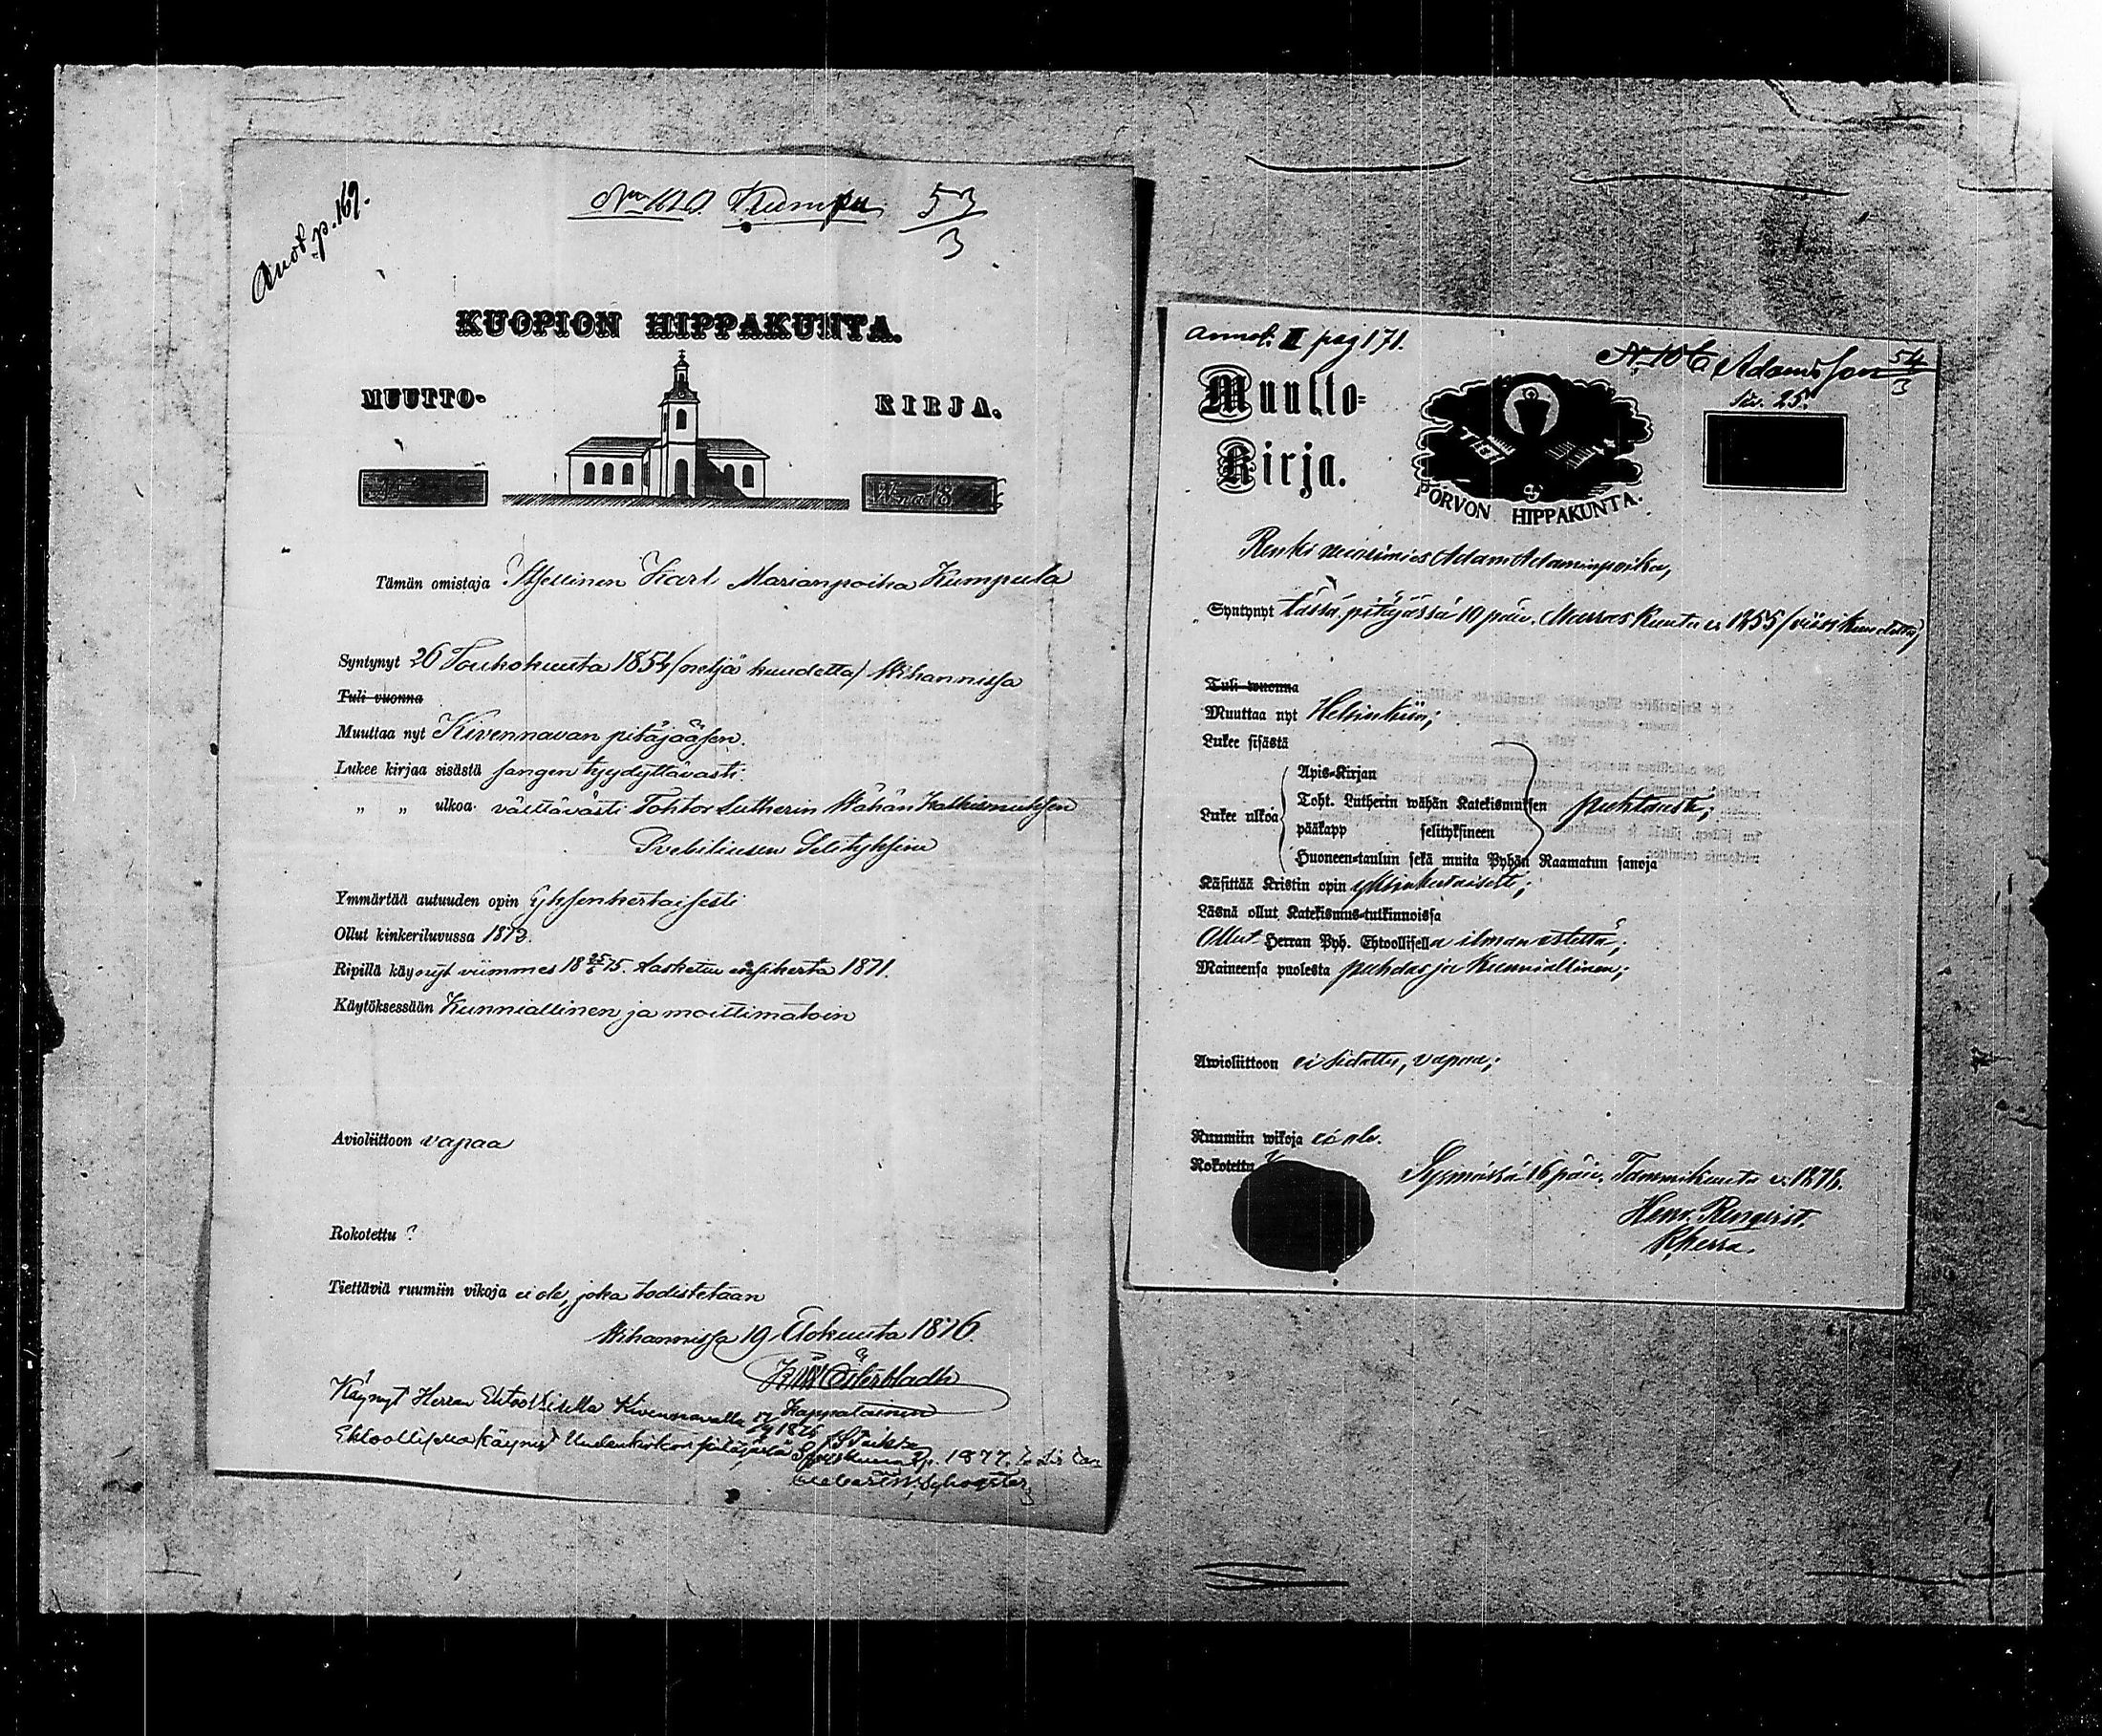 Anot. p. 169.
Kumpu 53/3
KUOPION HIPPAKUNTA.
MUUTTO- KIRJA.
Tämän omistaja Itsellinen Karl Marianpoika Kumpula
Syntynyt 26 Toukokuuta 1854 (neljä kuudetta) Wihannissa
Tuli vuonna
Muuttaa nyt Kivennavan pitäjääsen.
Lukee kirjaa sisästä sangen tyydyttävästi
„ „ ulkoa välttävästi Tohtor Lutherin Wähän Katkismuksen
Svebiliusen Selityksine
Ymmärtää autuuden opin Yksenkertaisesti
Ollut kinkeriluvussa 1873.
Ripillä käynyt viimmes 18 25/6 75. Laskettu ensikerta 1871.
Käytöksessään Kunniallinen ja moittimatoin
Avioliittoon vapaa
Rokotettu ?
Tiettäviä ruumiin vikoja ei ole, joka todistetaan
Wihannissa 19 Elokuuta 1876.
Österbladh
Kappalainen
Käynyt Herran Ehtoollisella Kivennavalla 1876
Ehtoollisella käynyt Uudenkirkon pitäjästä 1877.
annot. II pag 171.
Adamsson 54/3
Muutto=
Kirja.
PORVON HIPPAKUNTA.
Renki nuorimies Adam Adaminpoika,
Syntynyt tässä pitäjässä 10 päiv. Marraskuuta v. 1855 (viisi kuudetta)
Tuli wuonna
Muuttaa nyt Helsinkiin;
Lukee sisästä
Apis=Kirjan
Lukee ulkoa Toht. Lutherin wähän Katekismuksen puhtaasti;
pääkapp selityksineen
Huoneen=taulun sekä muita Pyhän Raamatun sanoja
Käsittää Kristin opin yksinkertaisesti;
Läsnä ollut Katekismus=tutkinnoissa
Ollut Herran Pyh. Ehtoollisella ilman estettä;
Maineensa puolesta puhdas ja kunniallinen;
Awioliittoon ei sidottu, vapaa;
Ruumiin wikoja ei ole.
Rokotettu
Sysmässä 16 päiv. Tammikuuta v. 1876.
Henr. Renqvist.
Kherra.